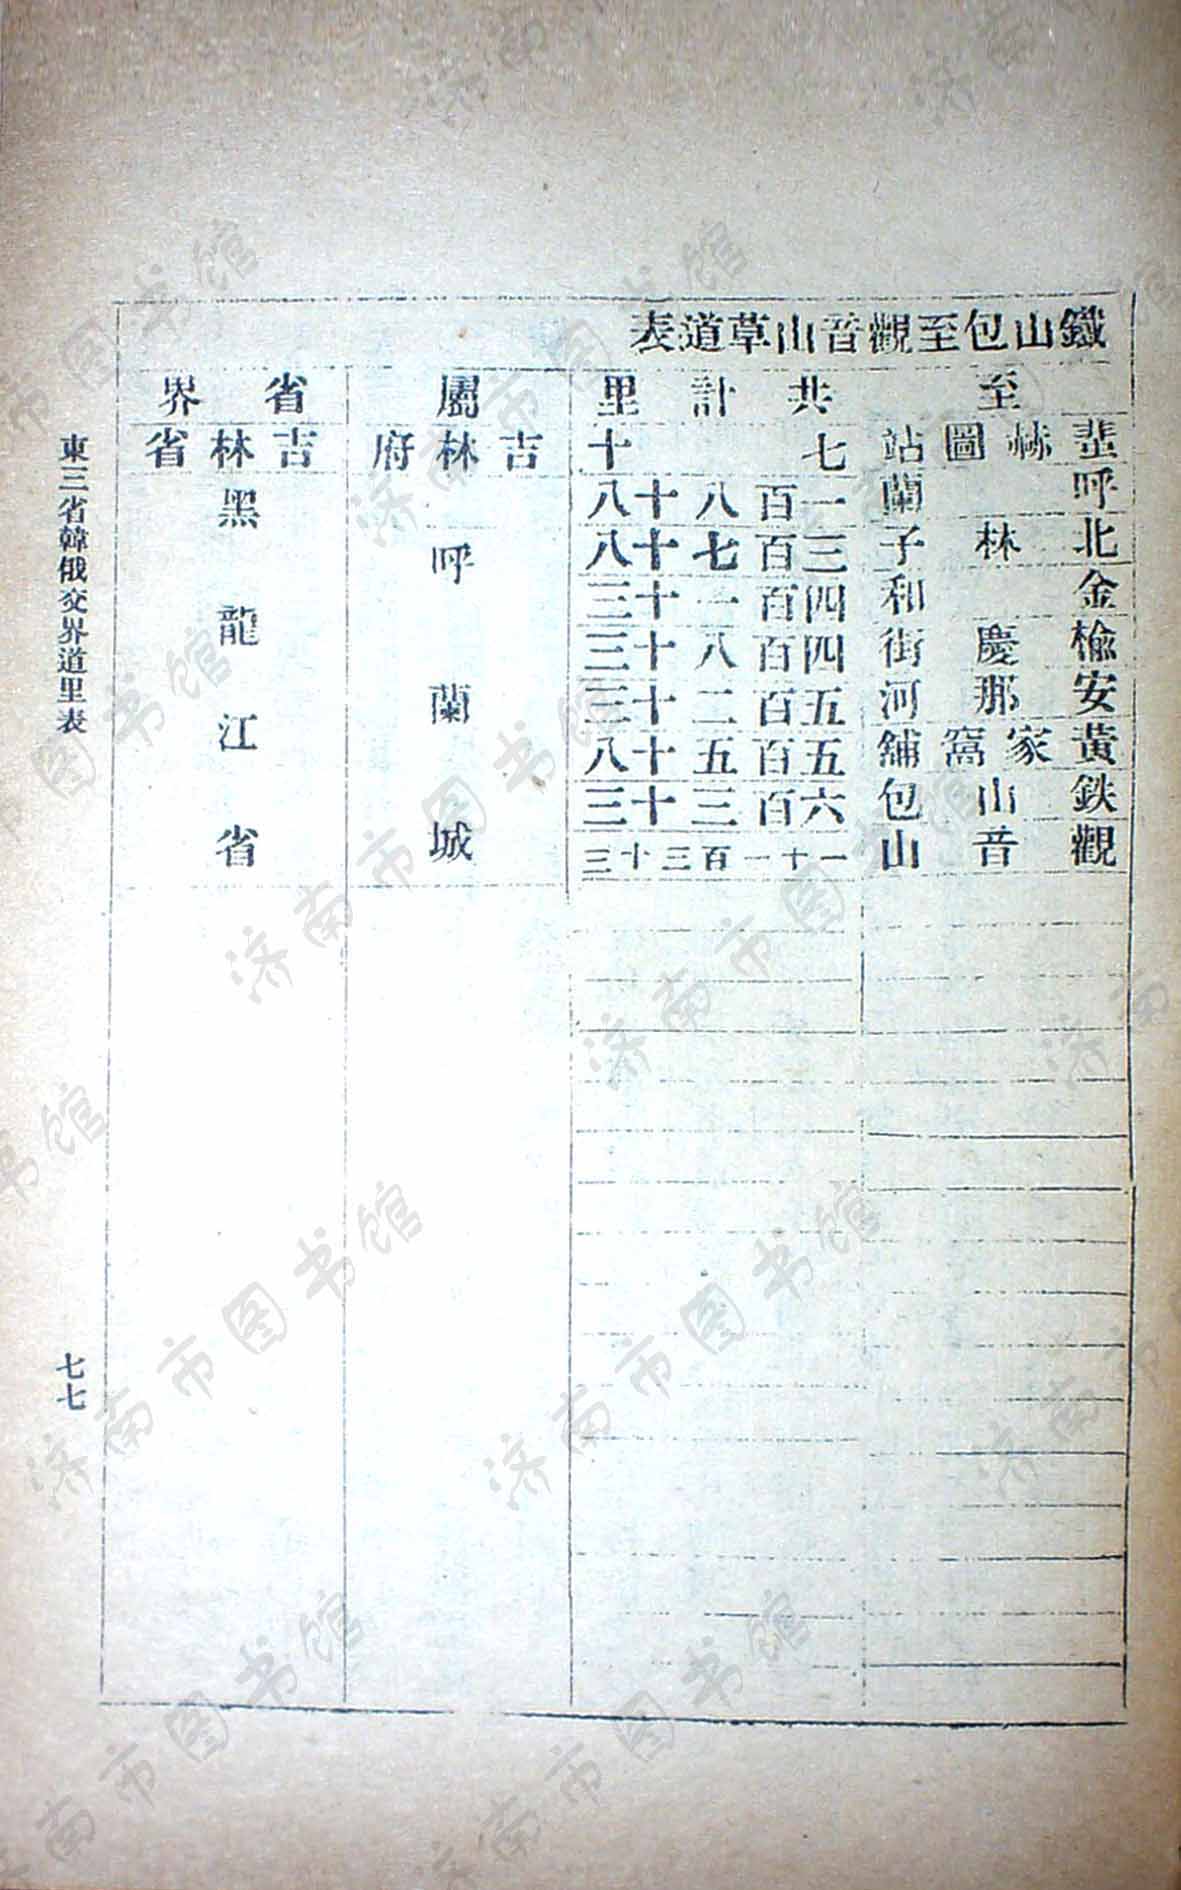 鐵山包至觀音山草道表
至 共計里 屬 省界
蜚赫圖站 七十 吉林府 吉林省
呼蘭 一百八十八 呼蘭城 黑龍江省
北林子 三百七十八
金和 四百一十三
楡慶街 四百八十三
安那河 五百二十三
黃家窩舖 五百五十八
鉄山包 六百三十三
觀音山 一十一百三十三
東三省韓俄交界道里表
七七
济南市图书馆